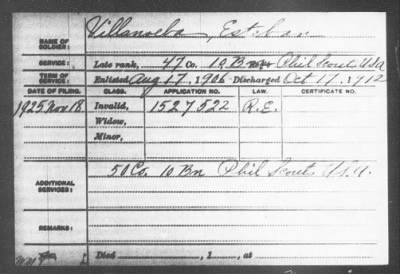 NAME OF SOLDIER: Villanoeba, Esteban
SERVICE: Late rank, 47 Co. 10 Bn Phil Scout, USA
TERM OF SERVICE: Enlisted Aug 17, 1906 Discharged Oct 17, 1912
DATE OF FILING. CLASS. APPLICATION NO. LAW. CERTIFICATE NO.
1925 Nov 18. Invalid, 1527522 R.E.
Widow,
Minor,
ADDITIONAL SERVICES: 50 Co. 10 Bn Phil Scout U.S.A.
REMARKS:
Died , 1 , at